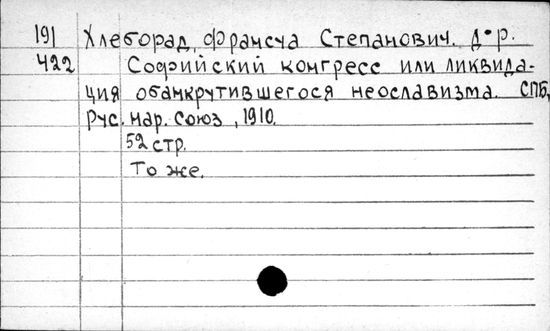 191 Хлеборад, Франсча Степанович, д-р.
422 Софийский конгресс или ликвида-
ция обанкрутившегося неославизма. СПБ,
Рус. нар. союз, 1910.
52 стр.
То же.